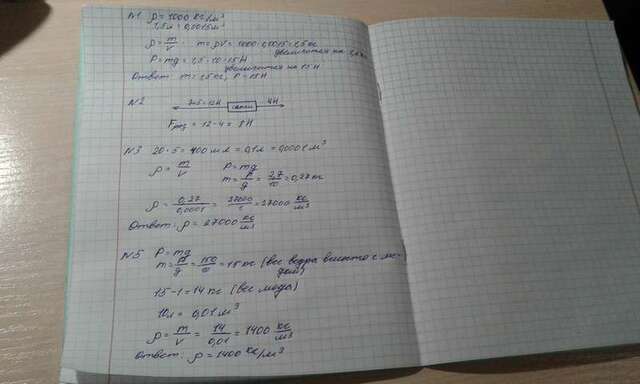 N1 ρ = 1000 кг/м³
1,5л = 0,0015м³
ρ = m/V m = ρV = 1000·0,0015 = 1,5 кг
увеличится на
P = mg = 1,5·10 = 15 Н
увеличится на 15 Н
Ответ: m = 1,5 кг, P = 15 Н
N2
12 Н санки 4Н
Fраз = 12 - 4 = 8 Н
N3 20·5 = 100 мл = 0,1л = 0,0001 м³
ρ = m/V P = mg
m = P/g = 2,7/10 = 0,27 кг
ρ = 0,27/0,0001 = 27000/1 = 27000 кг/м³
Ответ: ρ = 27000 кг/м³
N5 P = mg
m = P/g = 150/10 = 15 кг (вес ведра вместе с ме-
дом)
15 - 1 = 14 кг (вес меда)
10л = 0,01 м³
ρ = m/V = 14/0,01 = 1400 кг/м³
Ответ: ρ = 1400 кг/м³